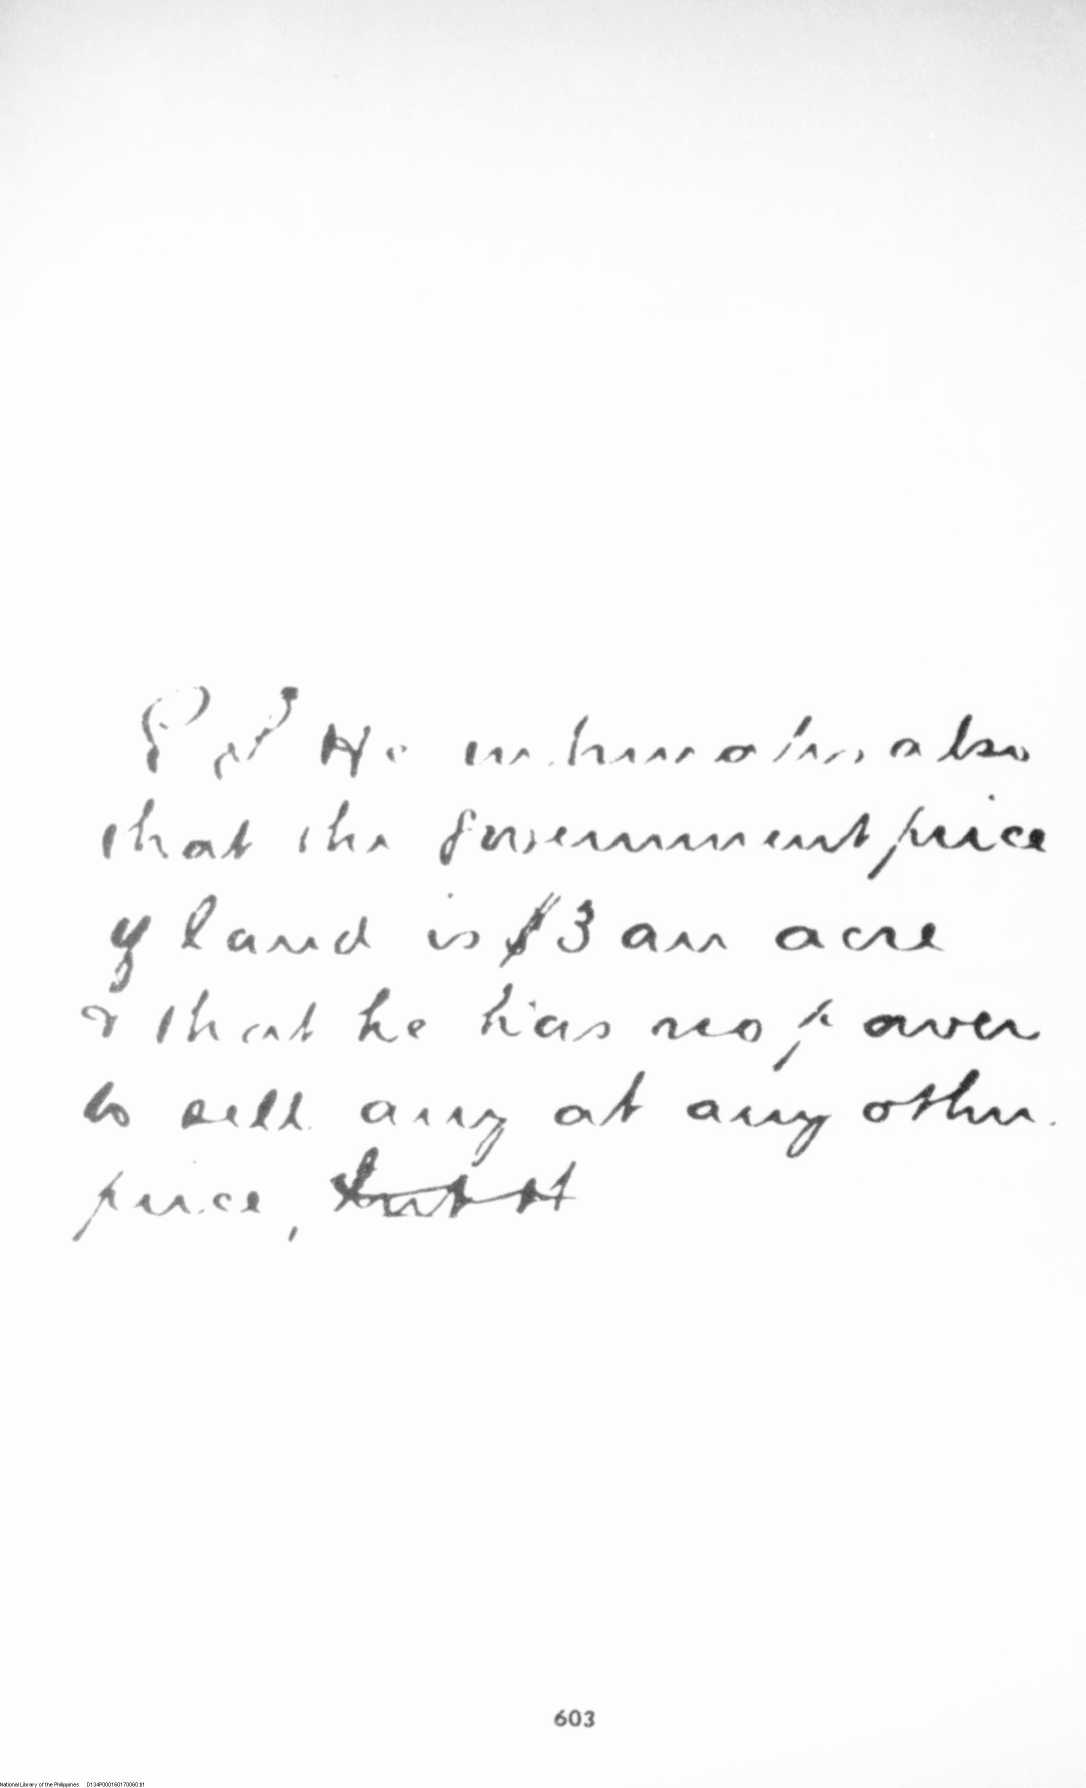 P S He intimates also
that the Government price
of land is $3 an acre
& that he has no power
to sell any at any other
price, but it
603
National Library of the Philippines